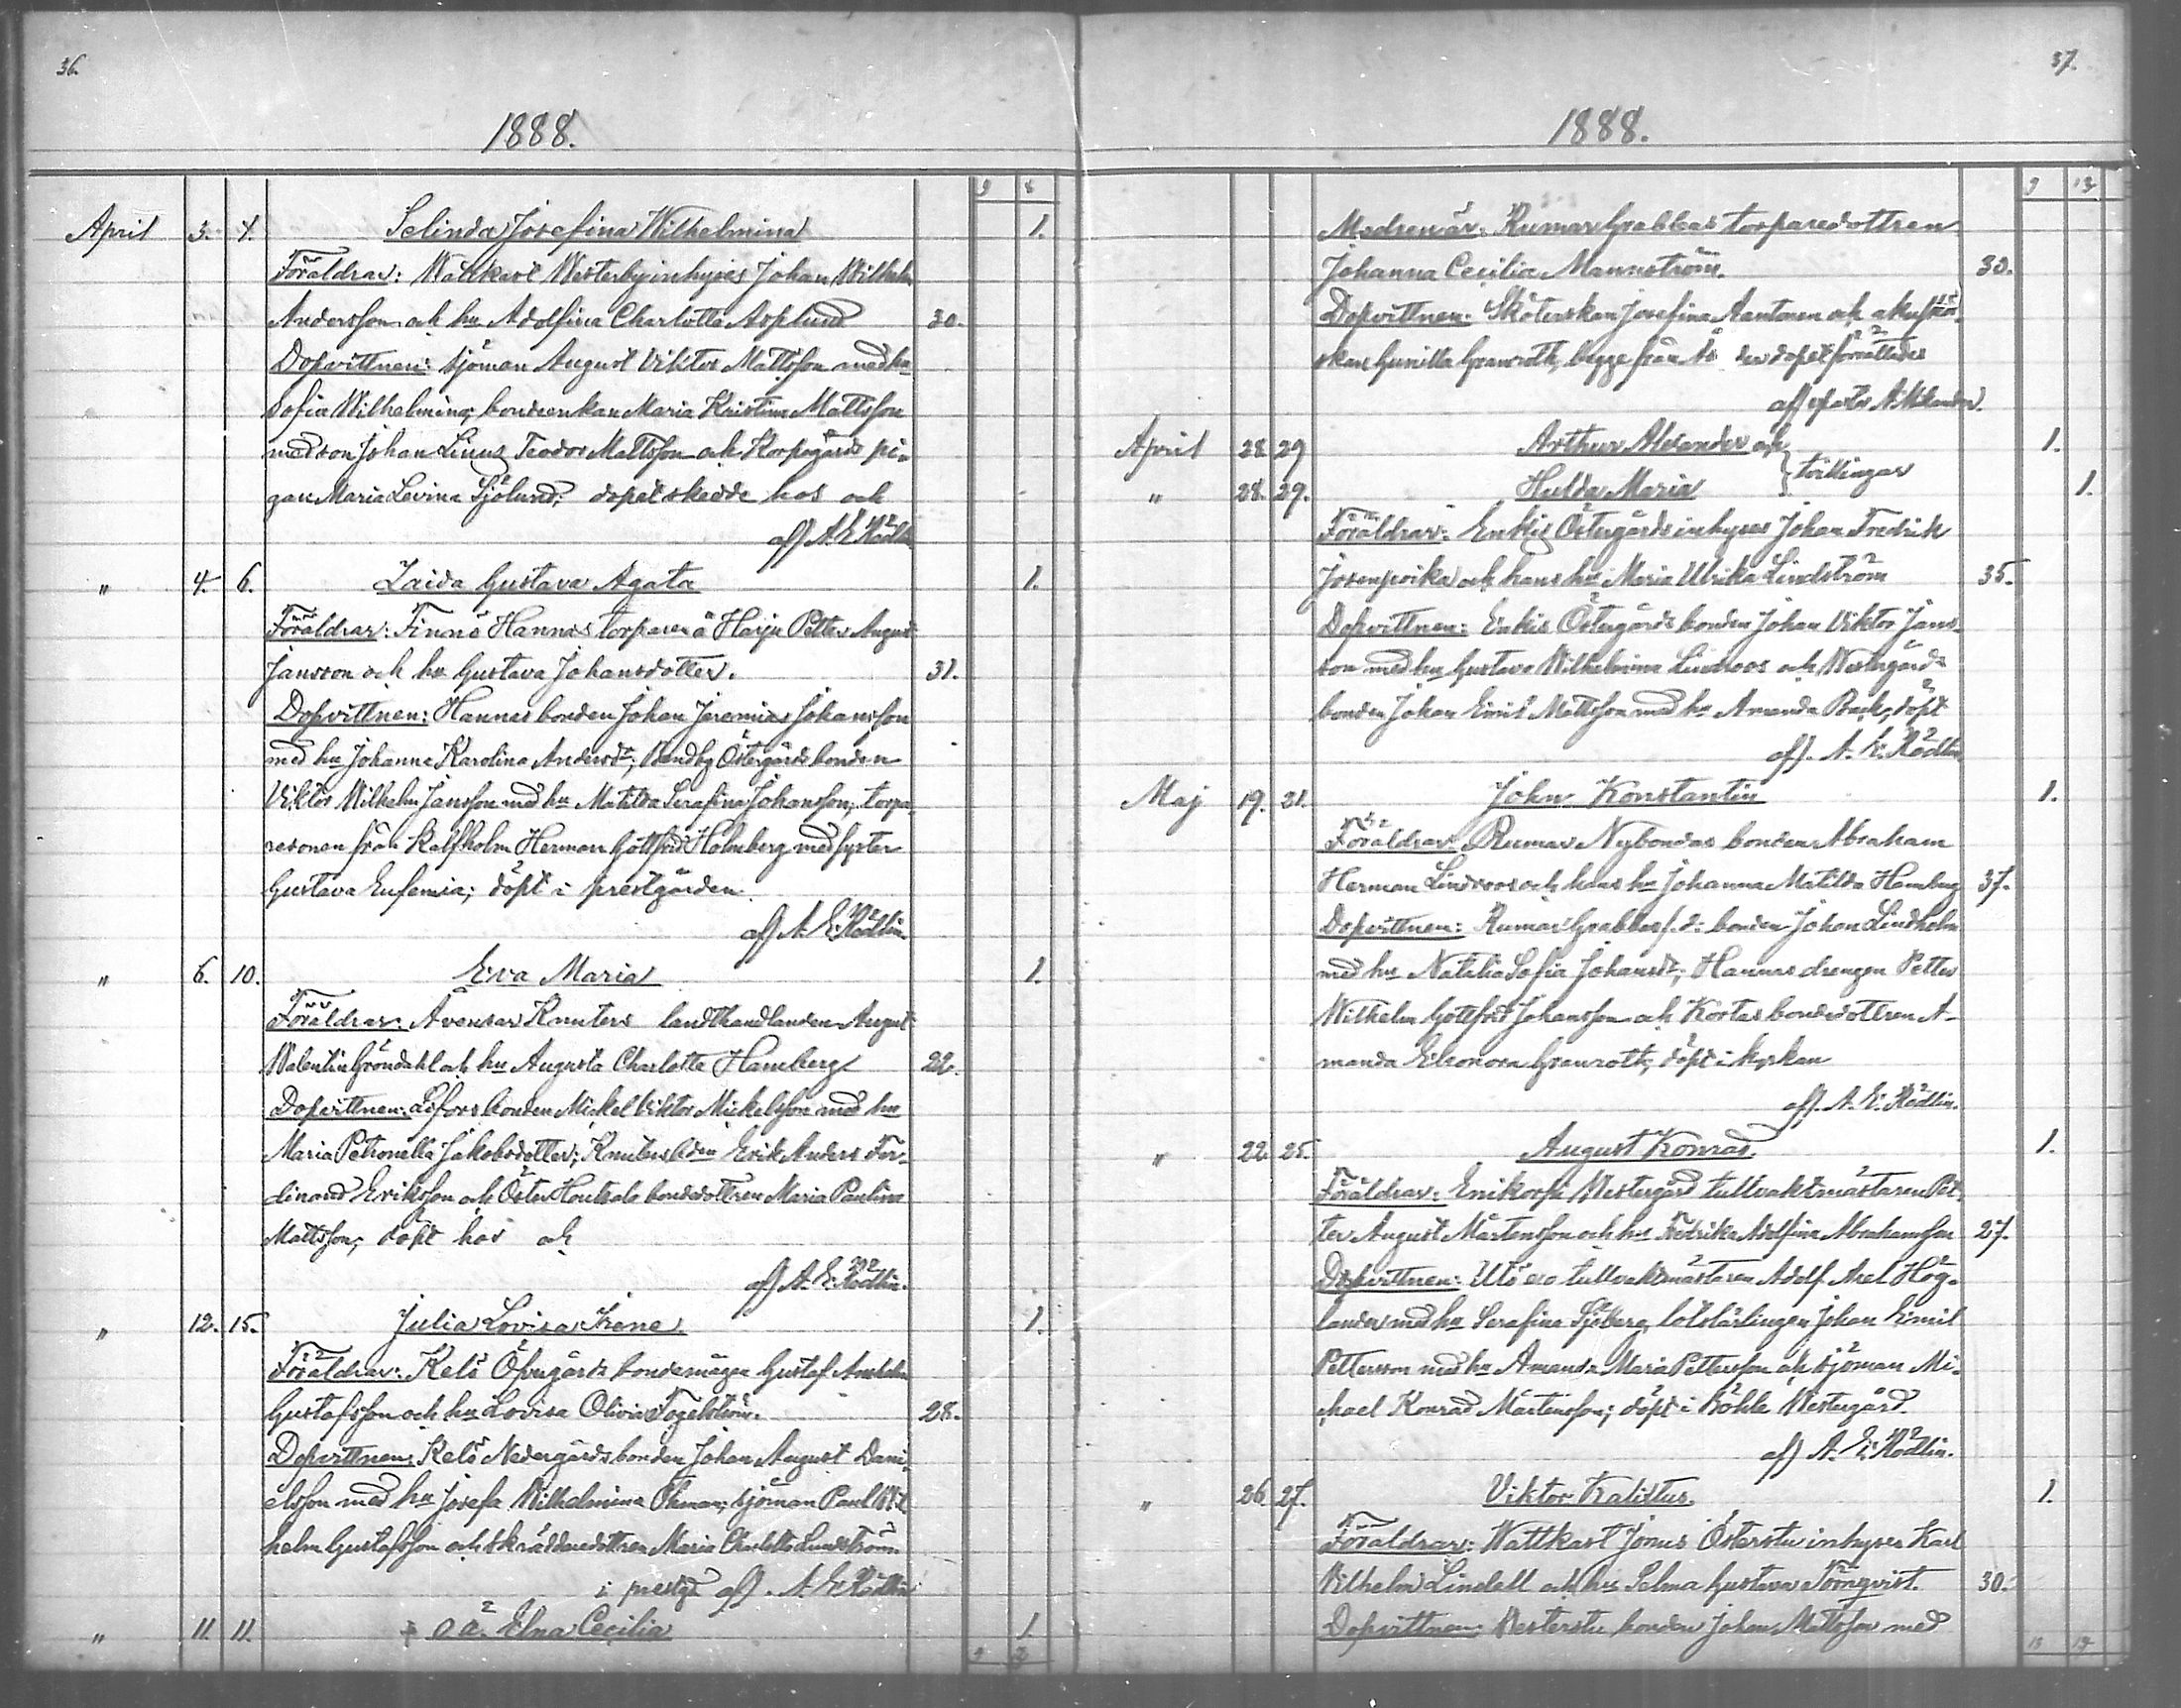 36.
1888.
9 8
April 3. 4. Selinda Josefina Wilhelmina 1.
Föräldrar: Wattkast Westerby inhyses Johan Wilhelm
Andersson och hu Adolfina Charlotta Asplund 30.
Dopvittnen: sjöman August Viktor Mattsson med hu
Sofia Wilhelmina, bondeenkan Maria Kristina Mattsson
med son Johan Linus Teodor Mattsson och Korpogårds pi-
gan Maria Levina Sjölund; dopet skedde hos och
af A. E. Rödlin
" 4. 6. Zaida Gustava Agata 1.
Föräldrar: Finnö Hannas torparen å Harju Petter August
Jansson och hu Gustava Johansdotter. 31.
Dopvittnen: Hannas bonden Johan Jeremias Johansson
med hu Johanna Karolina Andersdr; Bondby Östergårds bonden
Viktor Wilhelm Jansson med hu Matilda Serafina Johansson; torpa-
resonen från Kalfholm Herman Gottfrid Holmberg med syster
Gustava Eufemia; döpt i prestgården.
af A. E. Rödlin.
" 6. 10. Eva Maria 1.
Föräldrar: Åvensar Knuters landthandlanden August
Walentin Gröndahl och hu Augusta Charlotta Hamberg 22.
Dopvittnen: bonden Mickel Viktor Mickelsson med hu
Maria Petronella Jakobsdotter; Knuters bden Erik Anders Fer-
dinand Eriksson och Öster Houtsala bondedottren Maria Paulina
Mattsson; döpt hos och
af A. E. Rödlin.
" 12. 15. Julia Lovisa Irene 1.
Föräldrar: Kelö Öfvergårds bondemågen Gustaf Anshelm
Gustafsson och hu Lovisa Olivia Fogelström. 28.
Dopvittnen: Kelö Nedergårds bonden Johan August Dani-
elsson med hu Josefa Wilhelmina Öhman; sjöman Paul Wil-
helm Gustafsson och skräddaredottren Maria Charlotta Lundström
i prestgd af A. E. Rödlin
" 11. 11. o ä. Elna Cecilia 1
37.
1888.
9 13
Modren är: Rumar Grabbas torparedottren
Johanna Cecilia Mannström. 30.
Dopvittnen: Sköterskan Josefina Aantonen och
skan Gunilla Granroth, begge från Åbo der dopet förrättades
af pastor A. Mikander.
April 28 29 Arthur Alexander och 1.
" 28. 29. Hulda Maria } tvillingar 1.
Föräldrar: Enklis Östergårds inhyses Johan Fredrik
Josenpoika och hans hu Maria Ulrika Lindström 35.
Dopvittnen: Enklis Östergårds bonden Johan Viktor Jans-
son med hu Gustava Wilhelmina Lindroos och Westergårds
bonden Johan Emil Mattsson med hu Amanda Back, döpt
af. A. E. Rödlin
Maj 19. 21. John Konstantin 1.
Föräldrar: Rumar Nybondas bonden Abraham
Herman Lindroos och hans hu Johanna Matilda Hamberg 37.
Dopvittnen: Rumar Grabbas f. d: bonden Johan Lindholm
med hu Natalia Sofia Johansdr; Hannas drengen Petter
Wilhelm Gottfrid Johansson och Kortas bondedottren A-
manda Eleonora Granroth; döpt i kyrkan
af. A. E. Rödlin.
" 22. 25. August Konrad. 1.
Föräldrar: Enikorpi Westergård tullvaktmästaren Pet-
ter August Mårtensson och hu Fredrika Adolfina Abrahamsson 27.
Dopvittnen: Utö e.o tullvaktmästaren Adolf Axel Hög-
lander med hu Serafina Sjöberg, lotslärlingen Johan Emil
Pettersson med hu Amanda Maria Pettersson och sjöman Mi-
chael Konrad Mårtensson; döpt i Böhle Westergård.
af A. E. Rödlin.
" 26. 27. Viktor Kalixtus. 1.
Föräldrar: Wattkast Jonus Österstu inhyses Karl
Vilhelm Lindell och hu Selma Gustava Törnqvist. 30.
Dopvittnen: Vesterstu bonden Johan Mattsson med